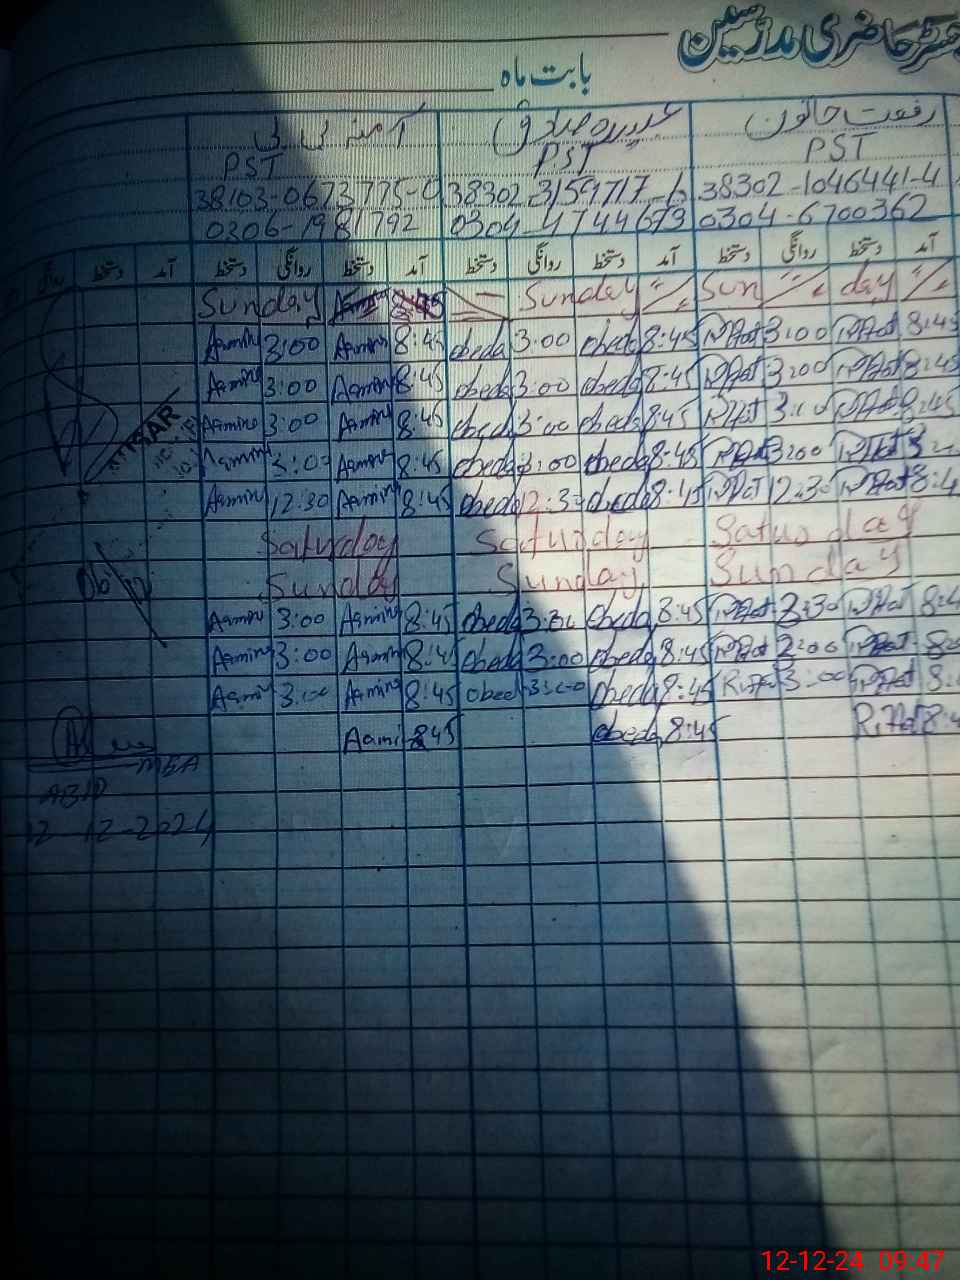 رجسٹر حاضری مدرسین
بابت ماہ
رفعت خاتون عبیدہ صادق آمنہ بی بی
PST PST PST
38103-0673775-0 38302-3159717-6 38302-1046441-4
0306-1981792 0304-4744673 0304-6700362
آمد دستخط روانگی دستخط آمد دستخط روانگی دستخط آمد دستخط روانگی دستخط آمد دستخط روانگی
Sunday Sunday Sun day
Aamina 3:00 Aamina 8:45 obeda 3:00 obeda 8:45 Riffat 3:00 Riffat 8:45
Aamina 3:00 Aamina 8:45 obeda 3:00 obeda 8:45 Riffat 3:00 Riffat 8:45
Aamina 3:00 Aamina 8:45 obeda 3:00 obeda 8:45 Riffat 3:00 Riffat 8:45
Aamina 3:00 Aamina 8:45 obeda 3:00 obeda 8:45 Riffat 3:00 Riffat
Aamina 12:30 Aamina 8:45 obeda 12:30 obeda 8:45 Riffat 12:30 Riffat 8:4
Saturday Saturday Saturday
Sunday Sunday Sunday
Aamina 3:00 Aamina 8:45 obeda 3:30 obeda 8:45 Riffat 3:30 Riffat 8:4
Aamina 3:00 Aamina 8:45 obeda 3:00 obeda 8:45 Riffat 3:00 Riffat
Aamina 3:00 Aamina 8:45 obeda 3:00 obeda 8:45 Riffat 3:00 Riffat 8:
Aami 8:45 obeda 8:45 Riffat 8:4
MEA
ABID
12-12-2024
12-12-24 09:47